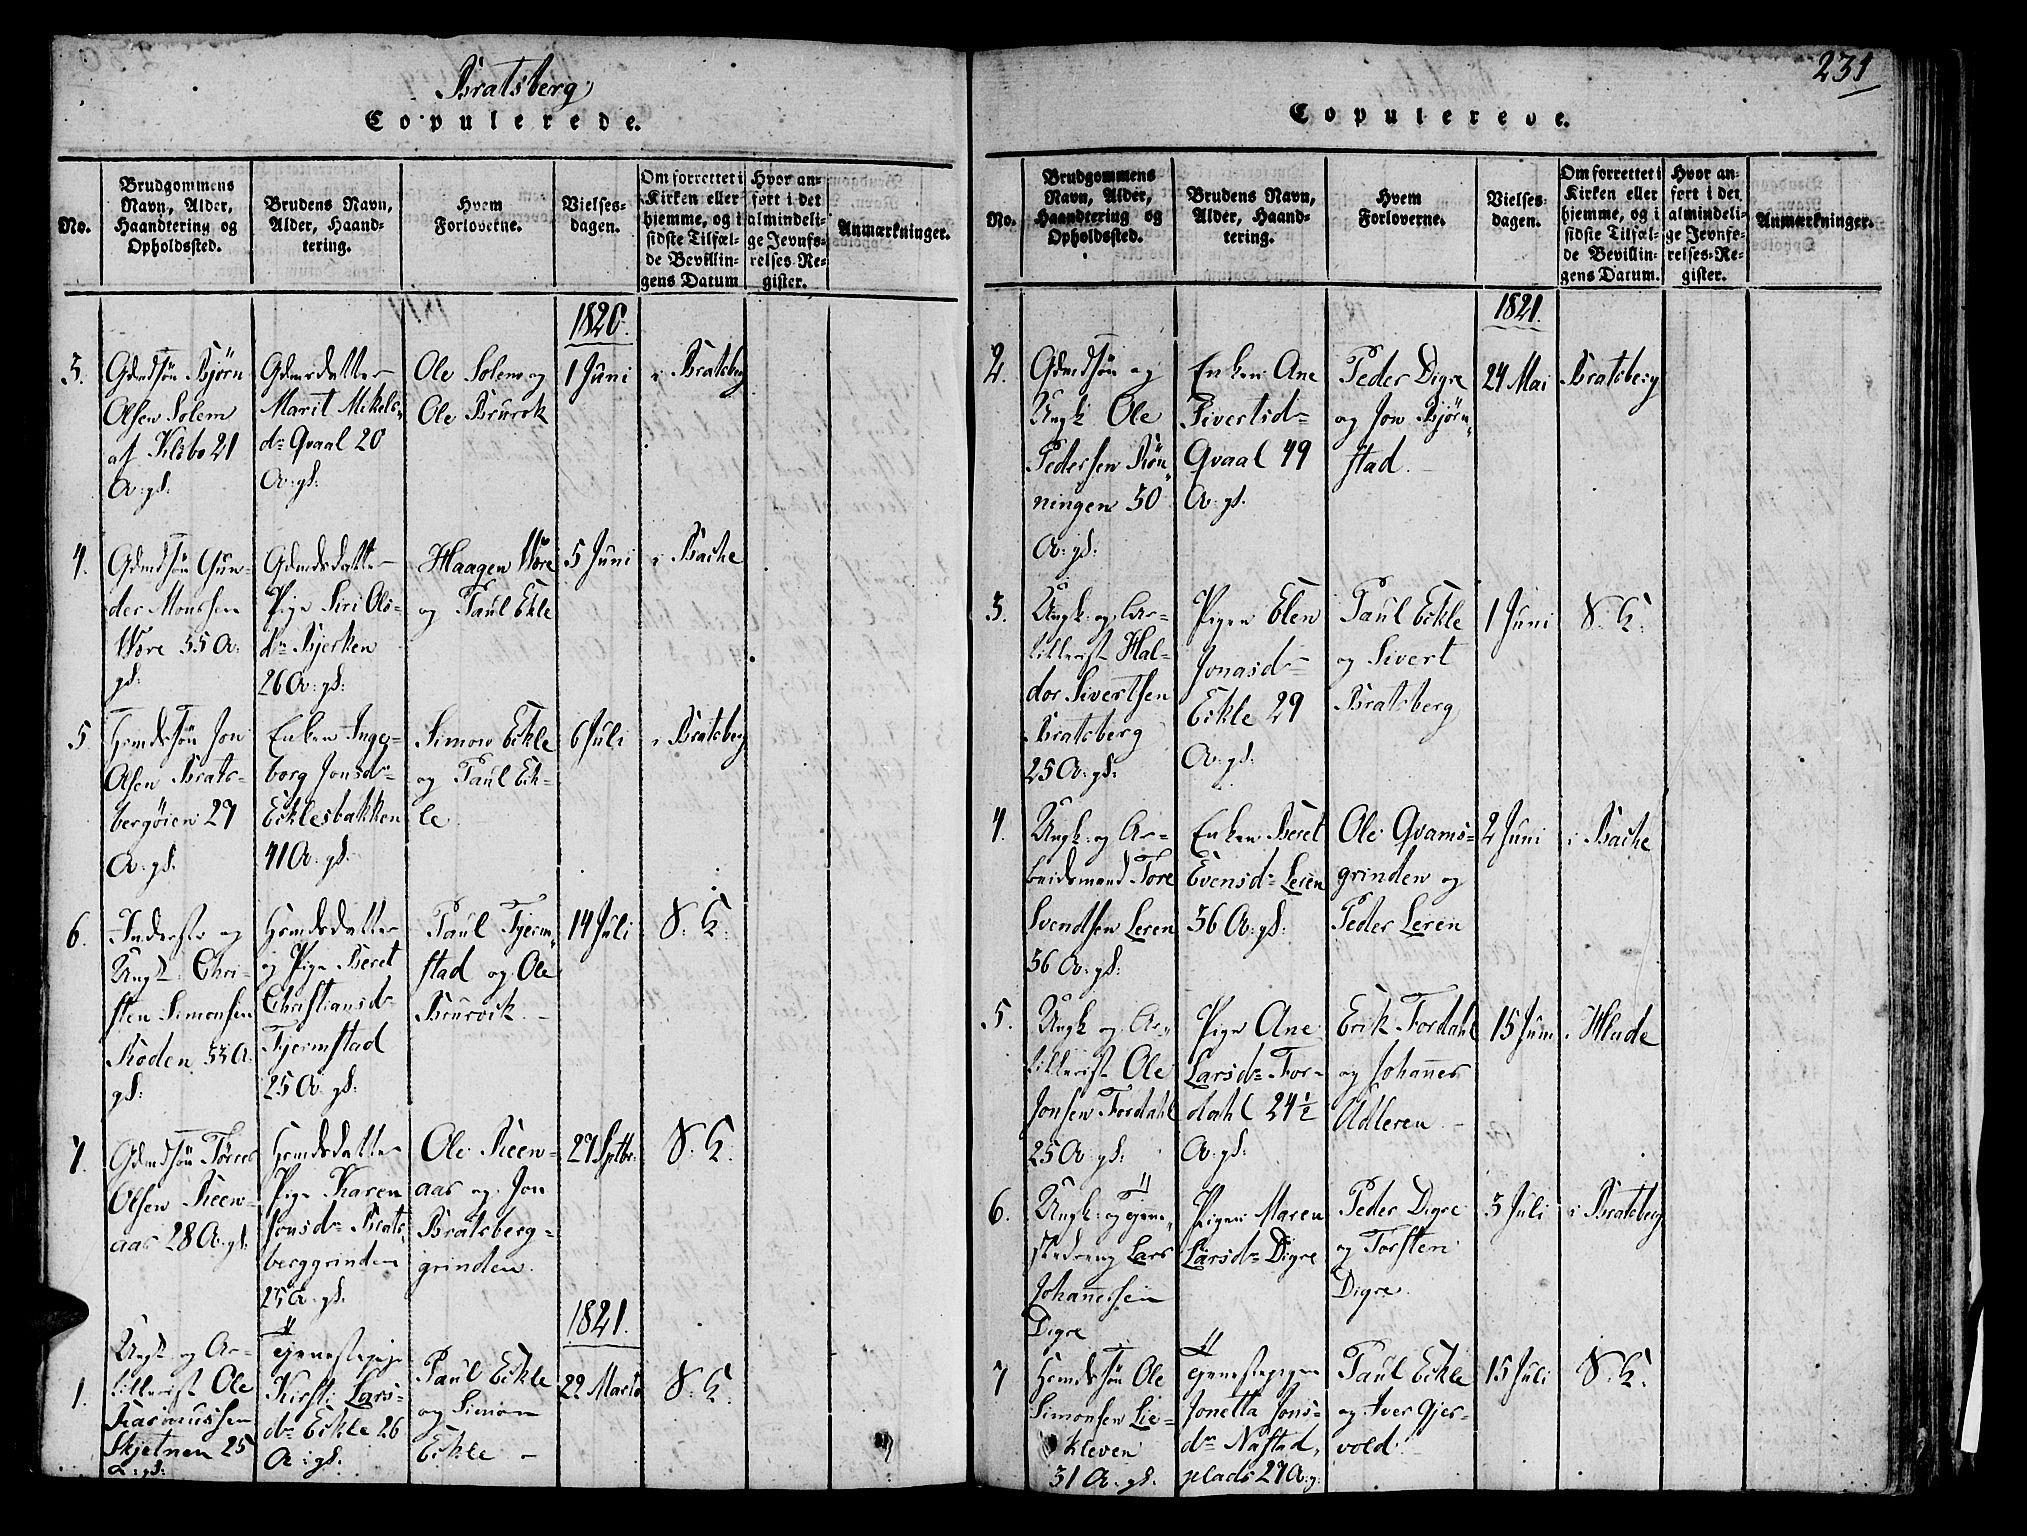 Bratsberg
Copulerede.
No.
Brudgommens
Navn, Alder,
Haandtering og
Opholdssted.
Brudens Navn,
Alder, Haand-
tering.
Hvem
Forloverne.
Vielses-
dagen.
Om forrettet i
Kirken eller
hjemme, og i
sidste Tilfæl-
de Bevillin-
gens Datum
Hvor an-
ført i det
almindeli-
ge Jevnfø-
relses-Re-
gister.
Anmærkninger.
1820.
3.
Gdmdsøn Bjørn
Olsen Solem
af Klæbo 21
A: gl:
Gdmdsdatter
Marit Mikels
dr Qvaal 20
A: gl:
Ole Solem og
Ole Brurok
1 Juni
i Bratsberg
4.
Gdmdsøn Gun-
der Monssen
Wore 35 A:
gl:
Gdmdsdatter
Pige Siri Ols-
dr Bjerken
26 A: gl:
Haagen Wore
og Paul Ekle
5 Juni
i Bache
5
Hsmdssøn Jon
Olsen Brats-
bergøien 27
A: gl:
Enken Inge-
borg Jonsdr
Ecklesbakken
41 A: gl:
Simon Eckle
og Paul Eck-
le
6 Juli
i Bratsberg
6.
Inderste og
Ungk: Chri-
sten Simonsen
Roden 33 A:
gl:
Hsmdsdatter
og Pige Beret
Christiansdr
Tjermstad
25 A: gl:
Paul Tjerm
stad og Ole
Brurvik.
14 Juli
S. K.
7.
Gdmdsøn Tørres
Olsen Steen-
aas 28 A: gl:
Hsmdsdatter
Pige Karen
Jonsdr Brats
berggrinden
23 A: gl:
Ole Steen-
aas og Jon
Bratsberg-
grinden.
27 Sptbr:
S. K.
1821.
1.
Ungk og Ar-
tillerist Ole
Rasmussen
Skjetnen 25
A: gl:
Tjenestepige
Kirsti Lars-
dr Eckle 26
A: gl:
Paul Eckle
og Simon
Eckle
22 Marts
S. K.
231
Copulerede.
No.
Brudgommens
Navn, Alder,
Haandtering og
Opholdssted.
Brudens Navn,
Alder, Haand-
tering.
Hvem
Forloverne.
Vielses-
dagen.
Om forrettet i
Kirken eller
hjemme, og i
sidste Tilfæl-
de Bevillin-
gens Datum.
Hvor an-
ført i det
almindeli-
ge Jevnfø-
relses-Re-
gister.
Anmærkninger.
1821.
2.
Gdmdsøn og
Ungk: Ole
Pedersen Røn
ningen 30
A: gl:
Enken Ane
Sivertsdr
Qvaal 49
A: gl.
Peder Digre
og Jon Bjørn
stad.
24 Mai
Bratsberg
3.
Ungk: og Ar-
tillerist Hal-
dor Sivertsen
Bratsberg
25 A: gl:
Pigen Elen
Jonasdr
Eckle 29
A: gl:
Paul Eckle
og Sivert
Bratsberg
1 Juni
S. K.
4.
Ungk: og Ar-
beidsmand Tore
Svendsen Leren
36 A: gl:
Enken Beret
Evensdr Leren
36 A: gl:
Ole Qvams-
grinden og
Peder Leren
2 Juni
i Bache
5.
Ungk og Ar-
tillerist Ole
Jonsen Fordahl
25 A: gl:
Pige Ane
Larsdr For-
dahl 24 1/2
A: gl:
Erik Fordahl
og Johannes
Udleren.
15 Juni
i Hlade
6.
Ungk: og Tjene
stedreng Lars
Johannessen
Digre
Pigen Maren
Larsdr Digre
Peder Digre
og Torsten
Digre.
3 Juli
i Bratsberg
7
Hsmdssøn Ole
Simonsen Lie-
kleven
31 A: gl.
Tjenestepigen
Jonetta Jons-
dr Nastad
plads 27 A: g:
Paul Eckle
og Iver Gjer-
vold
15 Juli
S. K.